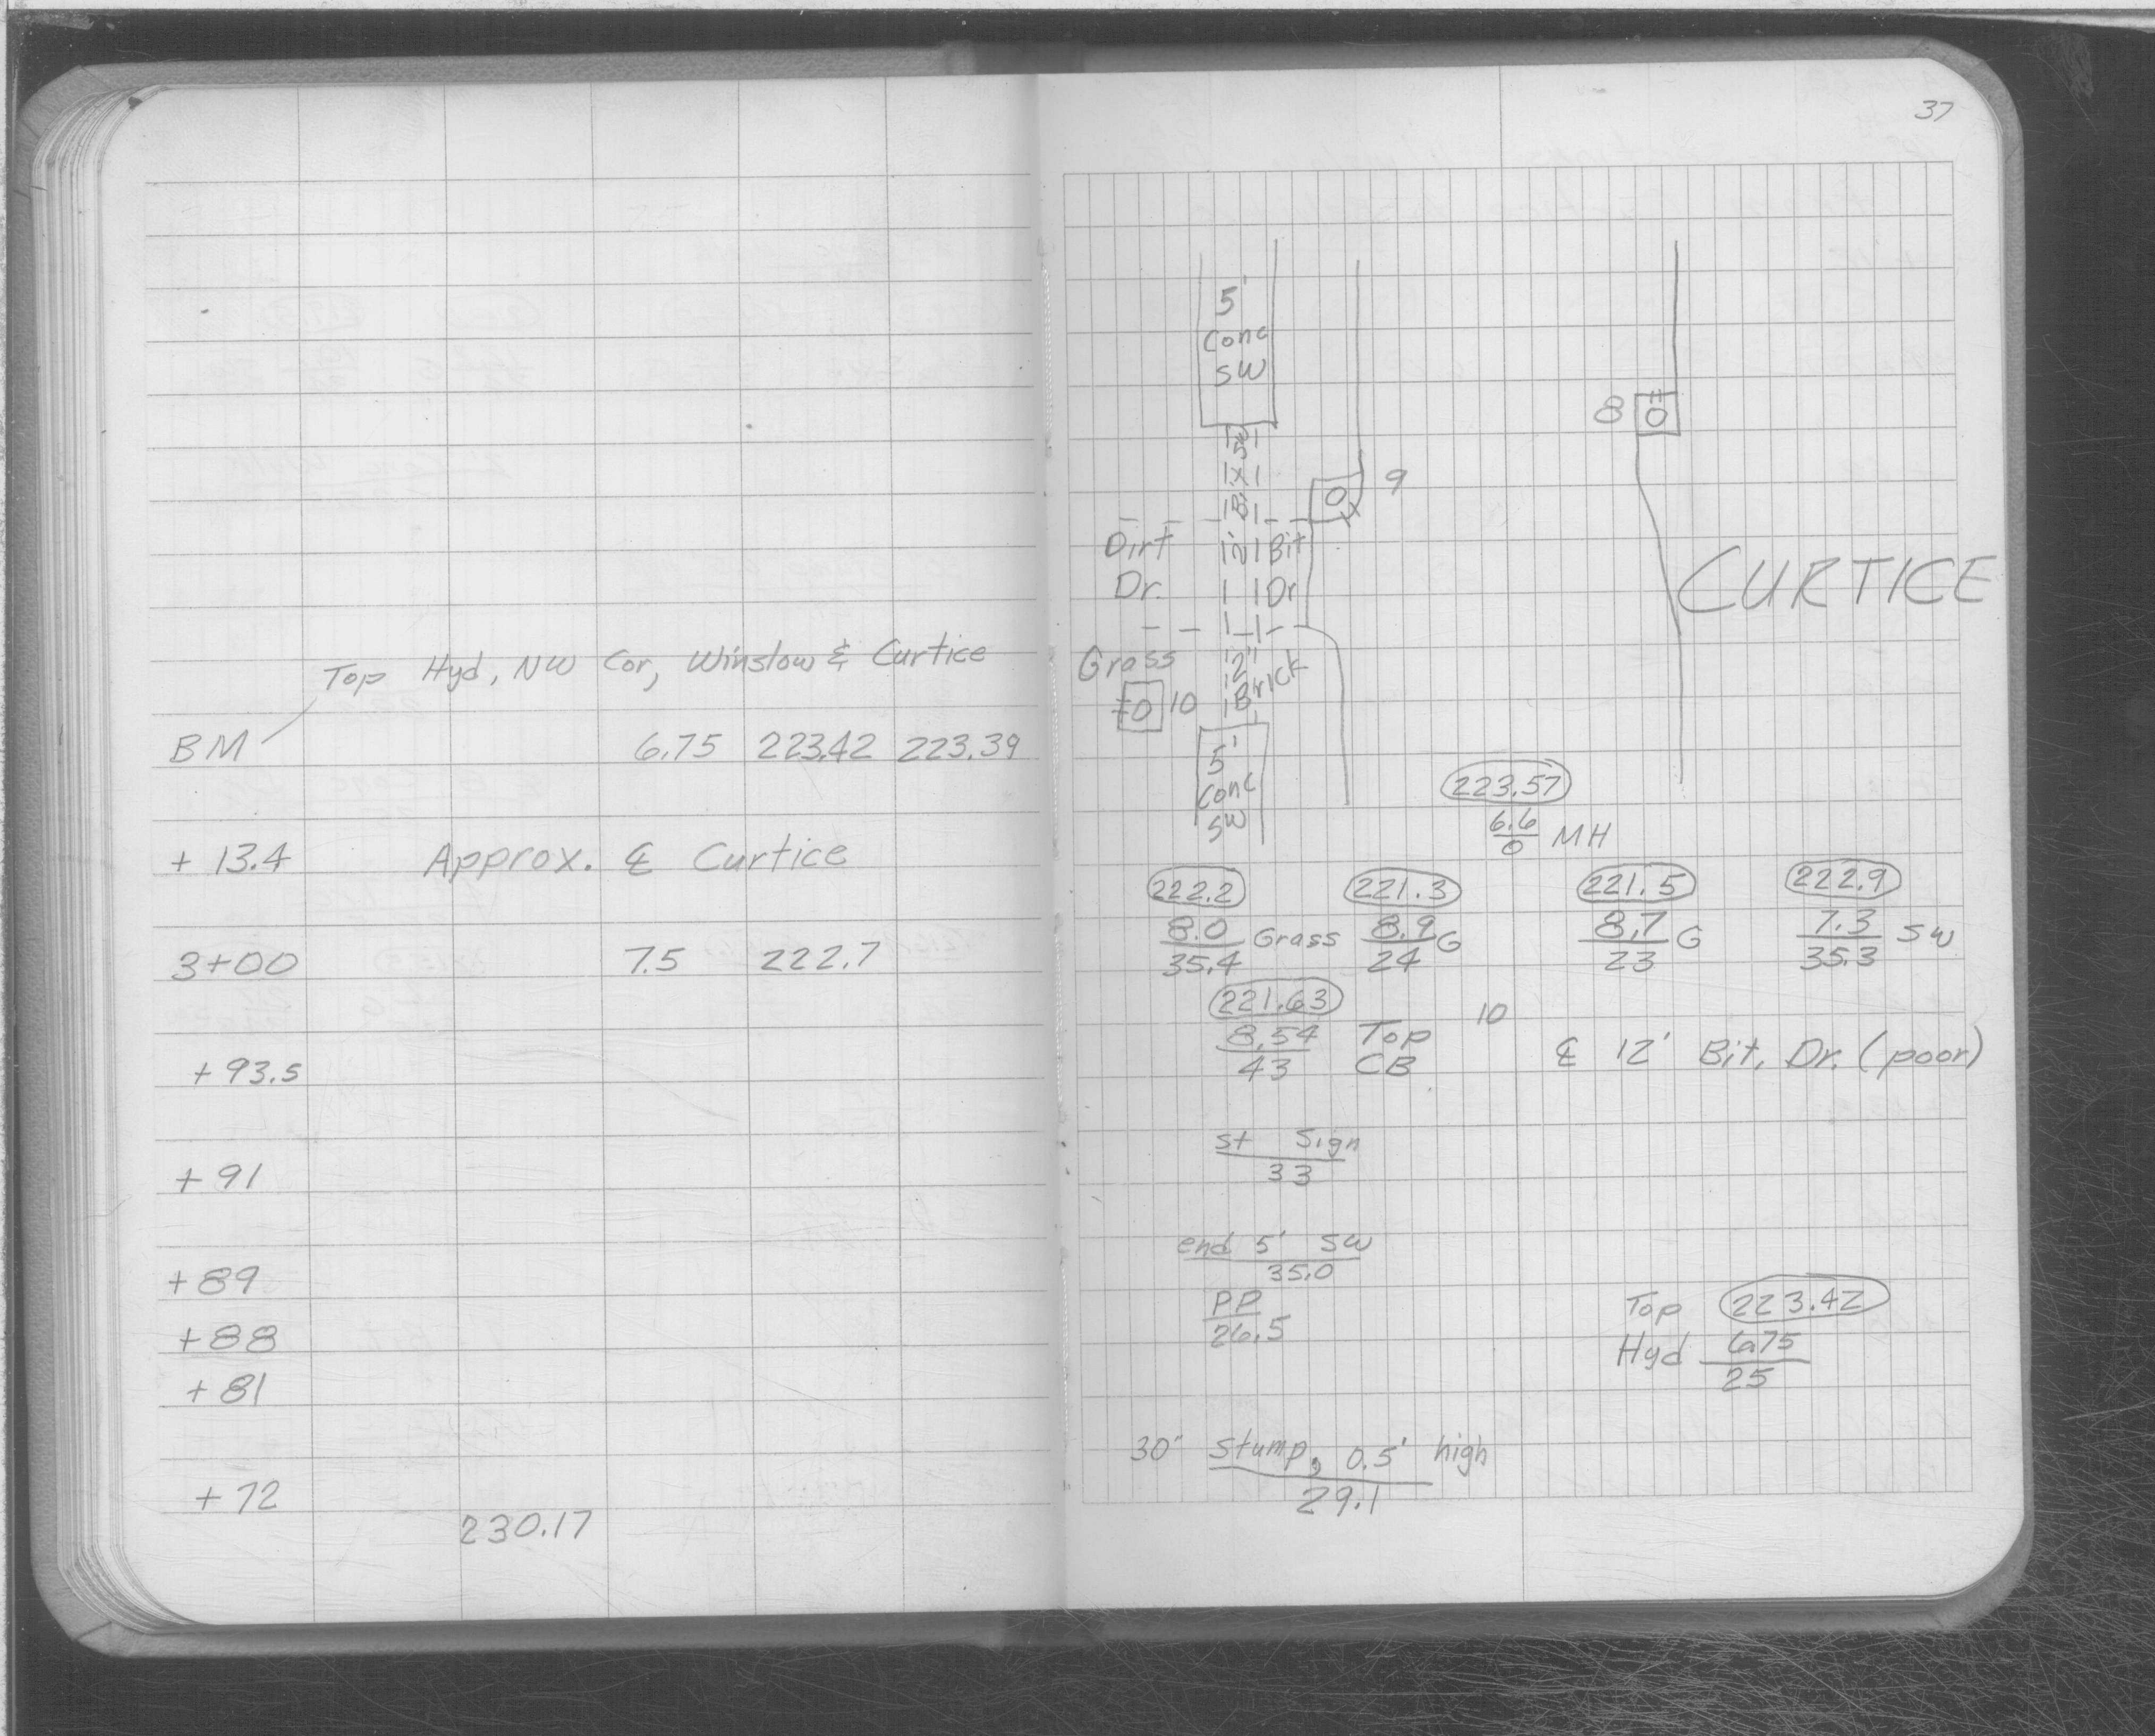 37
Top Hyd, NW Cor, Winslow & Curtice
BM 6.75 223.42 223.39
+ 13.4 Approx. ℄ Curtice
3+00 7.5 222.7
+ 93.5
+ 91
+ 89
+ 88
+ 81
+ 72
230.17
5'
Conc
SW
8
9
Dirt
Dr.
Bit
Dr
CURTICE
Grass
2'
Brick
10
5'
Conc
SW
223.57
6.6
0
MH
222.2 221.3 221.5 222.9
8.0 Grass 8.9 G 8.7 G 7.3 SW
35.4 24 23 35.3
221.63
8.54 Top 10
43 CB
℄ 12' Bit. Dr. (poor)
St Sign
33
end 5' SW
35.0
PP
26.5
Top 223.42
Hyd 6.75
25
30" Stump, 0.5' high
29.1